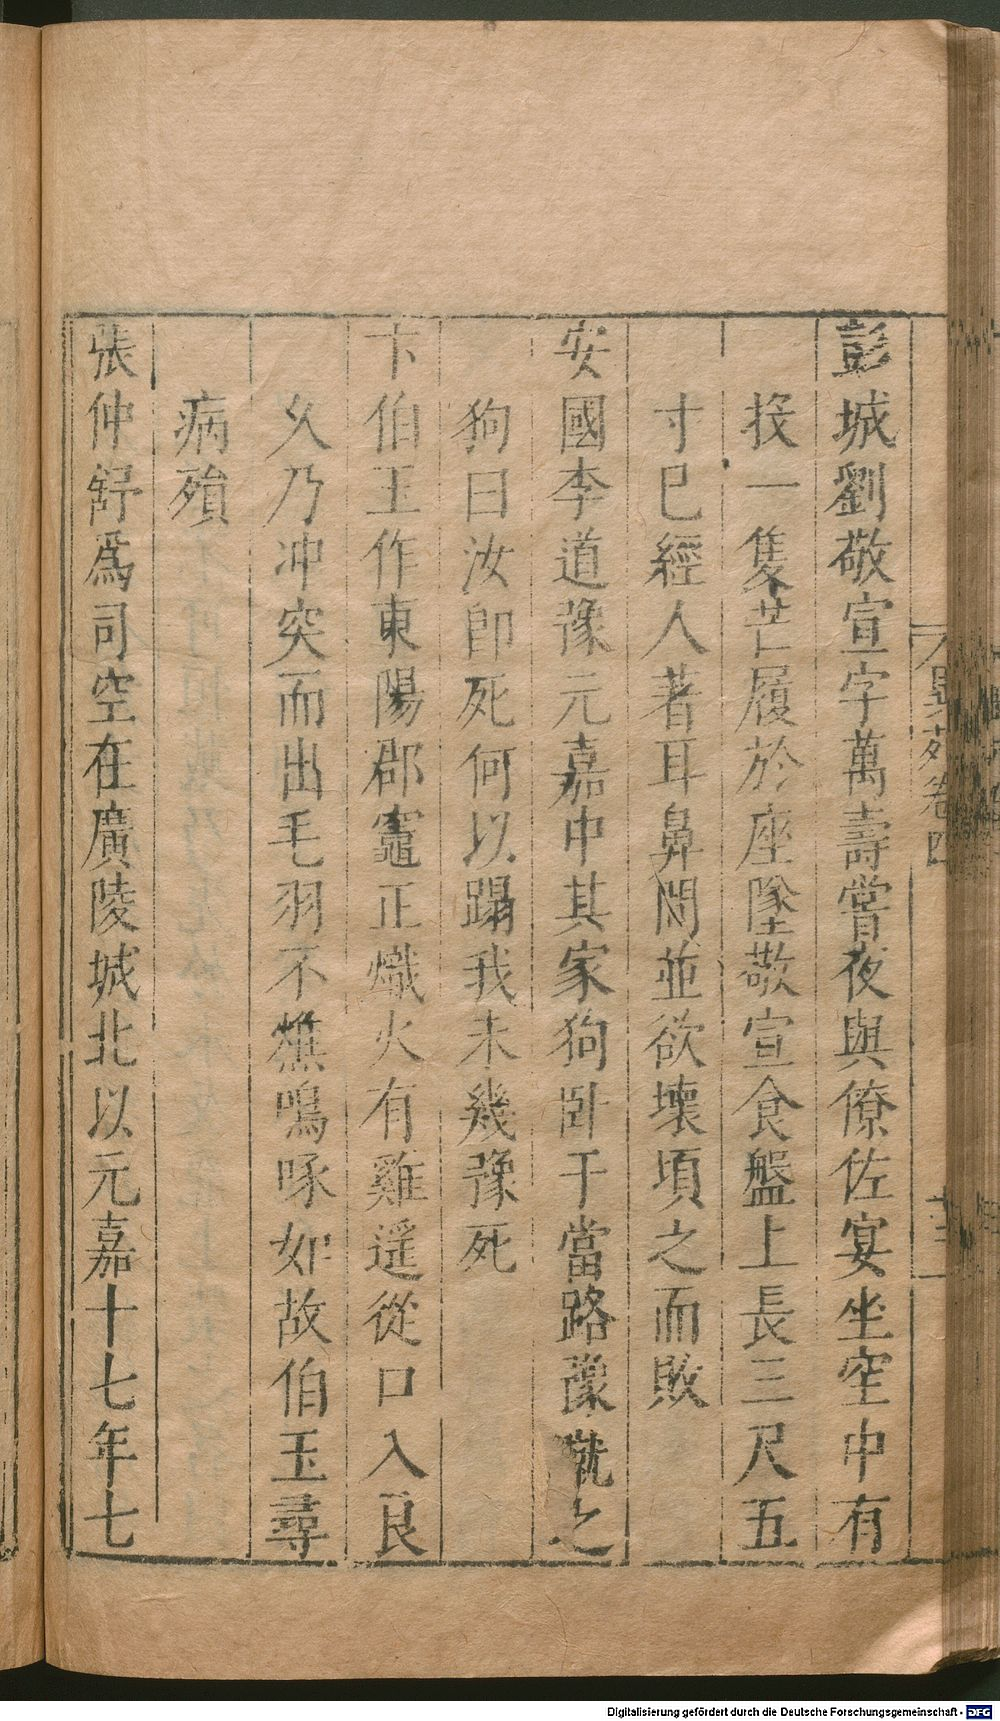 彭城劉敬宣字萬壽嘗夜與僚佐宴坐空中有
投一隻芒履於座墜敬宣食盤上長三尺五
寸已經人著耳鼻間並欲壞頃之而敗
安國李道豫元嘉中其家狗臥于當路豫蹴之
狗曰汝即死何以蹋我未幾豫死
卞伯玉作東陽郡竈正熾火有雞遥從口入良
乆乃冲突而出毛羽不燋鳴啄如故伯玉尋
病殞
張仲舒爲司空在廣陵城北以元嘉十七年七
異苑卷四
十三
Digitalisierung gefördert durch die Deutsche Forschungsgemeinschaft - DFG